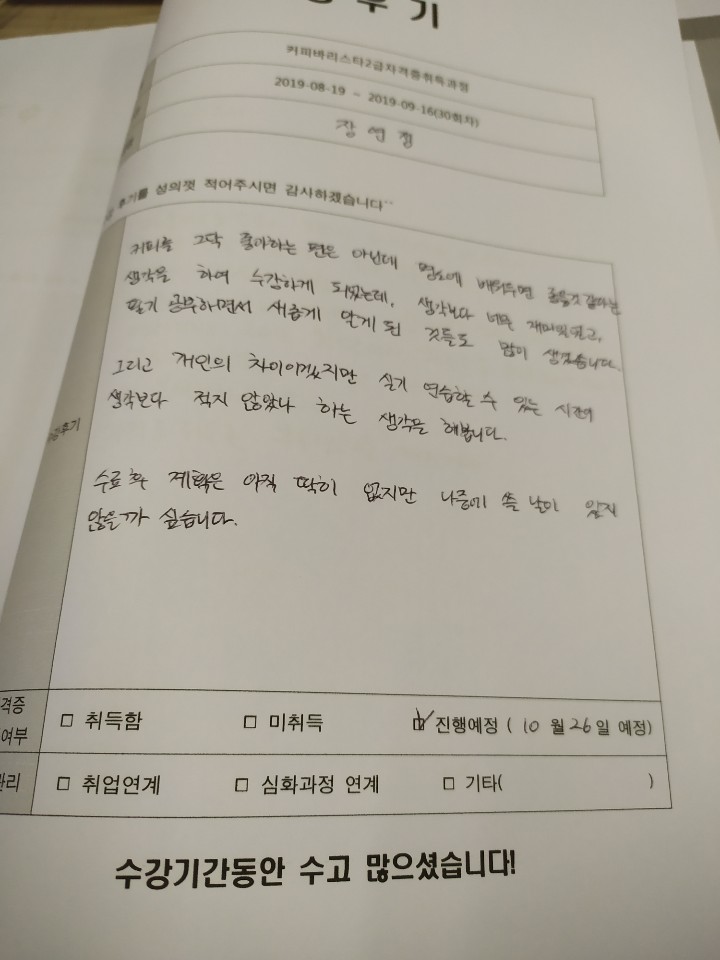 후기
커피바리스타2급자격증취득과정
2019-08-19 ~ 2019-09-16(30회차)
장연정
후기를 성의껏 적어주시면 감사하겠습니다^^
커피를 그닥 좋아하는 편은 아닌데 평소에 배워두면 좋을것 같다는
생각을 하여 수강하게 되었는데, 생각보다 너무 재미있었고,
필기 공부하면서 새롭게 알게 된 것들도 많이 생겼습니다.
그리고 개인의 차이이겠지만 실기 연습할 수 있는 시간이
생각보다 적지 않았나 하는 생각을 해봅니다.
수강후기
수료 후 계획은 아직 딱히 없지만 나중에 쓸 날이 있지
않을까 싶습니다.
격증
여부
□ 취득함 □ 미취득 ☑ 진행예정 ( 10 월 26 일 예정)
관리
□ 취업연계 □ 심화과정 연계 □ 기타( )
수강기간동안 수고 많으셨습니다!